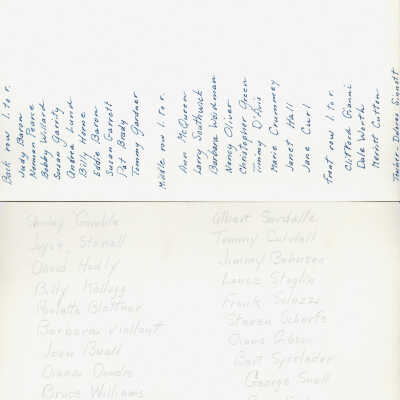 Back row l. to r.
Judy Baron
Norman Pearce
Bobby Willard
Susan Garrity
Andrea Lund
Billy Horne
Eddie Baron
Susan Garrett
Pat Brady
Tommy Gardner
Middle row l. to r.
Ann McQueen
Larry Southwick
Barbara Weidman
Nancy Oliver
Christopher Green
Timmy D'Avis
Marie Crummey
Janet Hall
Jane Curl
front row l. to r.
Clifford Gianni
Dale Worth
Merritt Cutten
Teacher - Dolores Sinnott
Gamble
Joyce Stovall
David Healy
Billy Kellogg
Paulette Blattner
Barbara Viellaut
Joan Buell
Diana Dendre
Bruce Williams
Albert Sardella
Tommy Caldall
Jimmy Behnsen
Lance Steglin
Frank Salazzi
Steven Scherfs
Diane Gibson
Bart Sperleder
George Snell